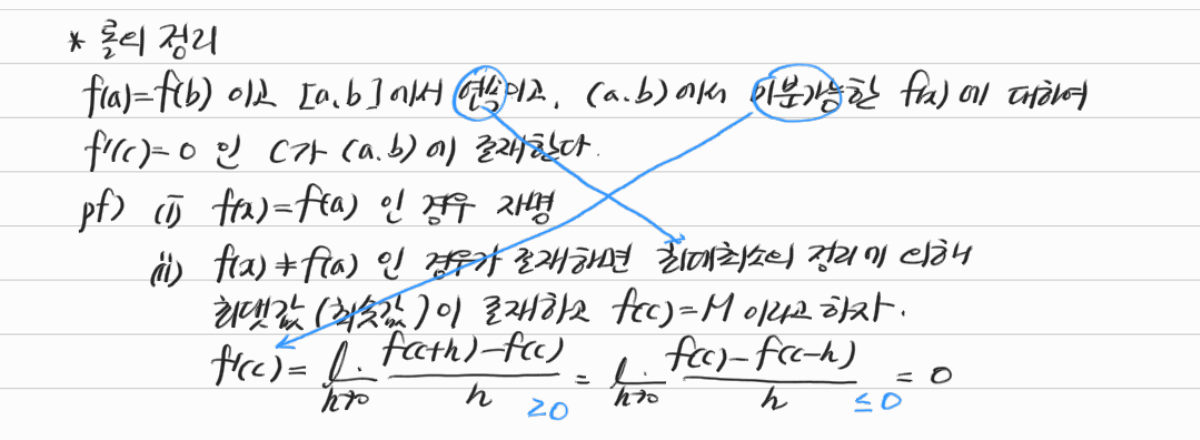 * 롤의 정리
f(a)=f(b) 이고 [a,b]에서 연속이고, (a,b)에서 미분가능한 f(x)에 대하여
f'(c)=0 인 c가 (a,b)에 존재한다.
pf) (i) f(x)=f(a) 인 경우 자명
(ii) f(x)≠f(a) 인 경우가 존재하면 최대최소의 정리에 의해
최댓값(최솟값)이 존재하고 f(c)=M 이라고 하자.
f'(c)= lim h→0 (f(c+h)-f(c))/h ≥0 = lim h→0 (f(c)-f(c-h))/h ≤0 = 0